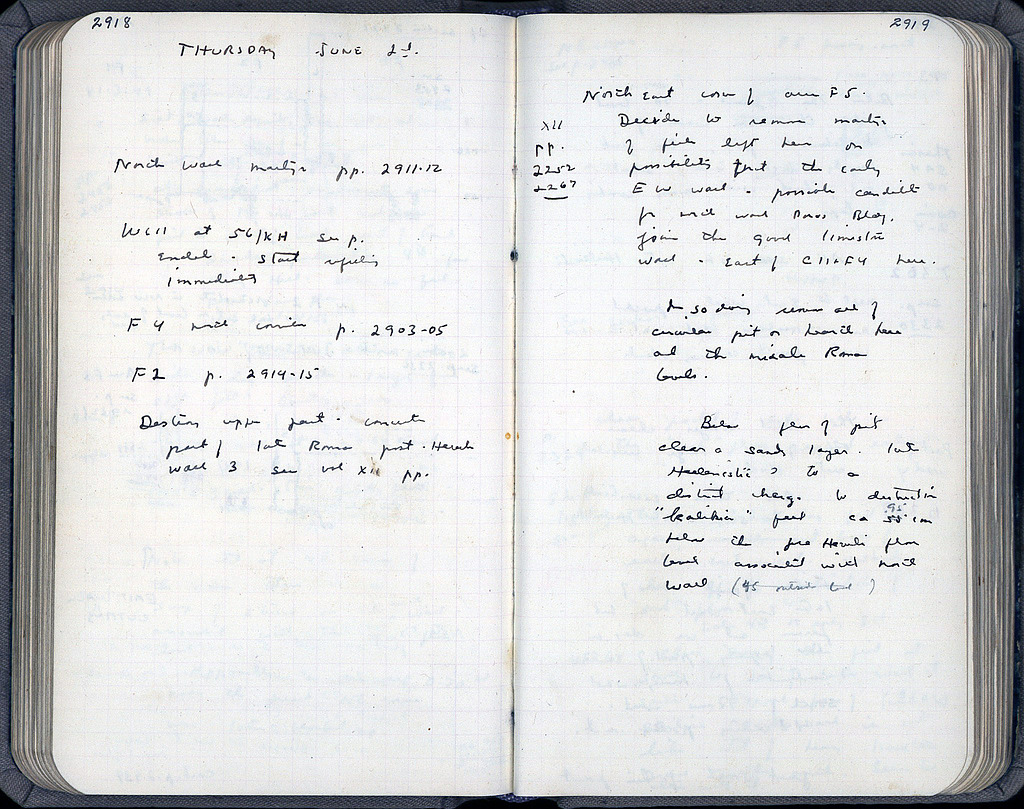 2918
THURSDAY JUNE 2nd.
North wall martyr pp. 2911-12
Well at 56/KH see p.
Ended - start refilling
immediately
F 4 north corridor p. 2903-05
F2 p. 2914-15
Destroy upper part - concrete
part of late Roman post-Heruli
wall 3 see vol XII pp.
2919
North East corner of area F5.
XII
pp.
2252
2267
Decide to remove martyr
of fill left here on
possibility that the early
E W wall - possible candidate
for north wall Poros Bldg.
joins the good limestone
wall - East of C11+F4 here.
In so doing remove all of
circular pit or hearth here
and the middle Roman
levels.
Below floor of pit
clear a sandy layer. late
Hellenistic? to a
district change to destruction
"kalikia" feet ca 55 cm
95
below the pre Heruli floor
level associated with north
wall (45 outside level)